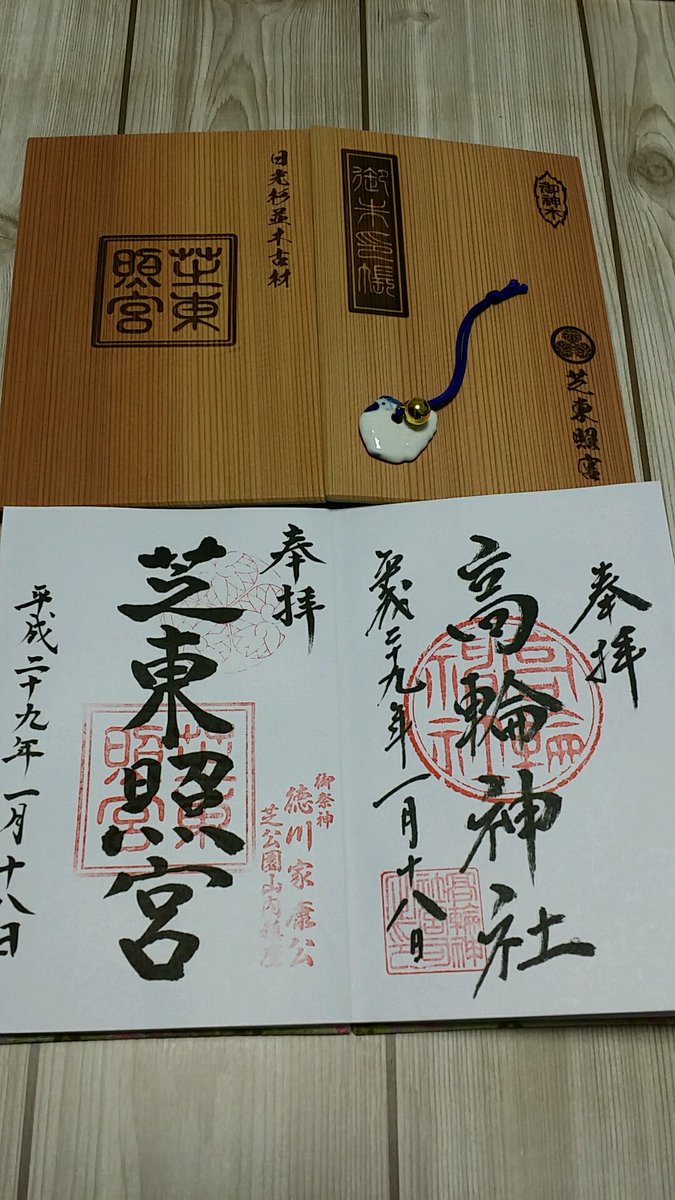 御神木
御朱印帳
芝東照宮
日光杉並木古材
芝東
照宮
奉拝
高輪神社
平成二十九年一月十八日
高輪
神社
高輪神
奉拝
御祭神
徳川家康公
芝公園山内鎮座
芝東照宮
芝東
照宮
平成二十九年一月十八日